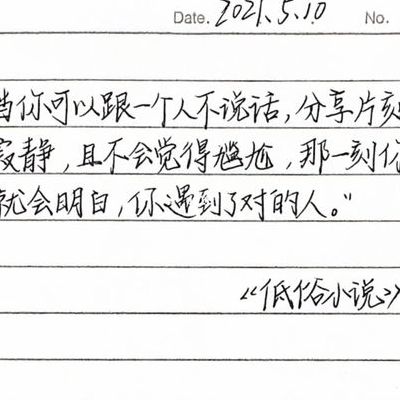 Date. 2021.5.10 No.
当你可以跟一个人不说话，分享片刻
寂静，且不会觉得尴尬，那一刻你
就会明白，你遇到了对的人。”
《低俗小说》